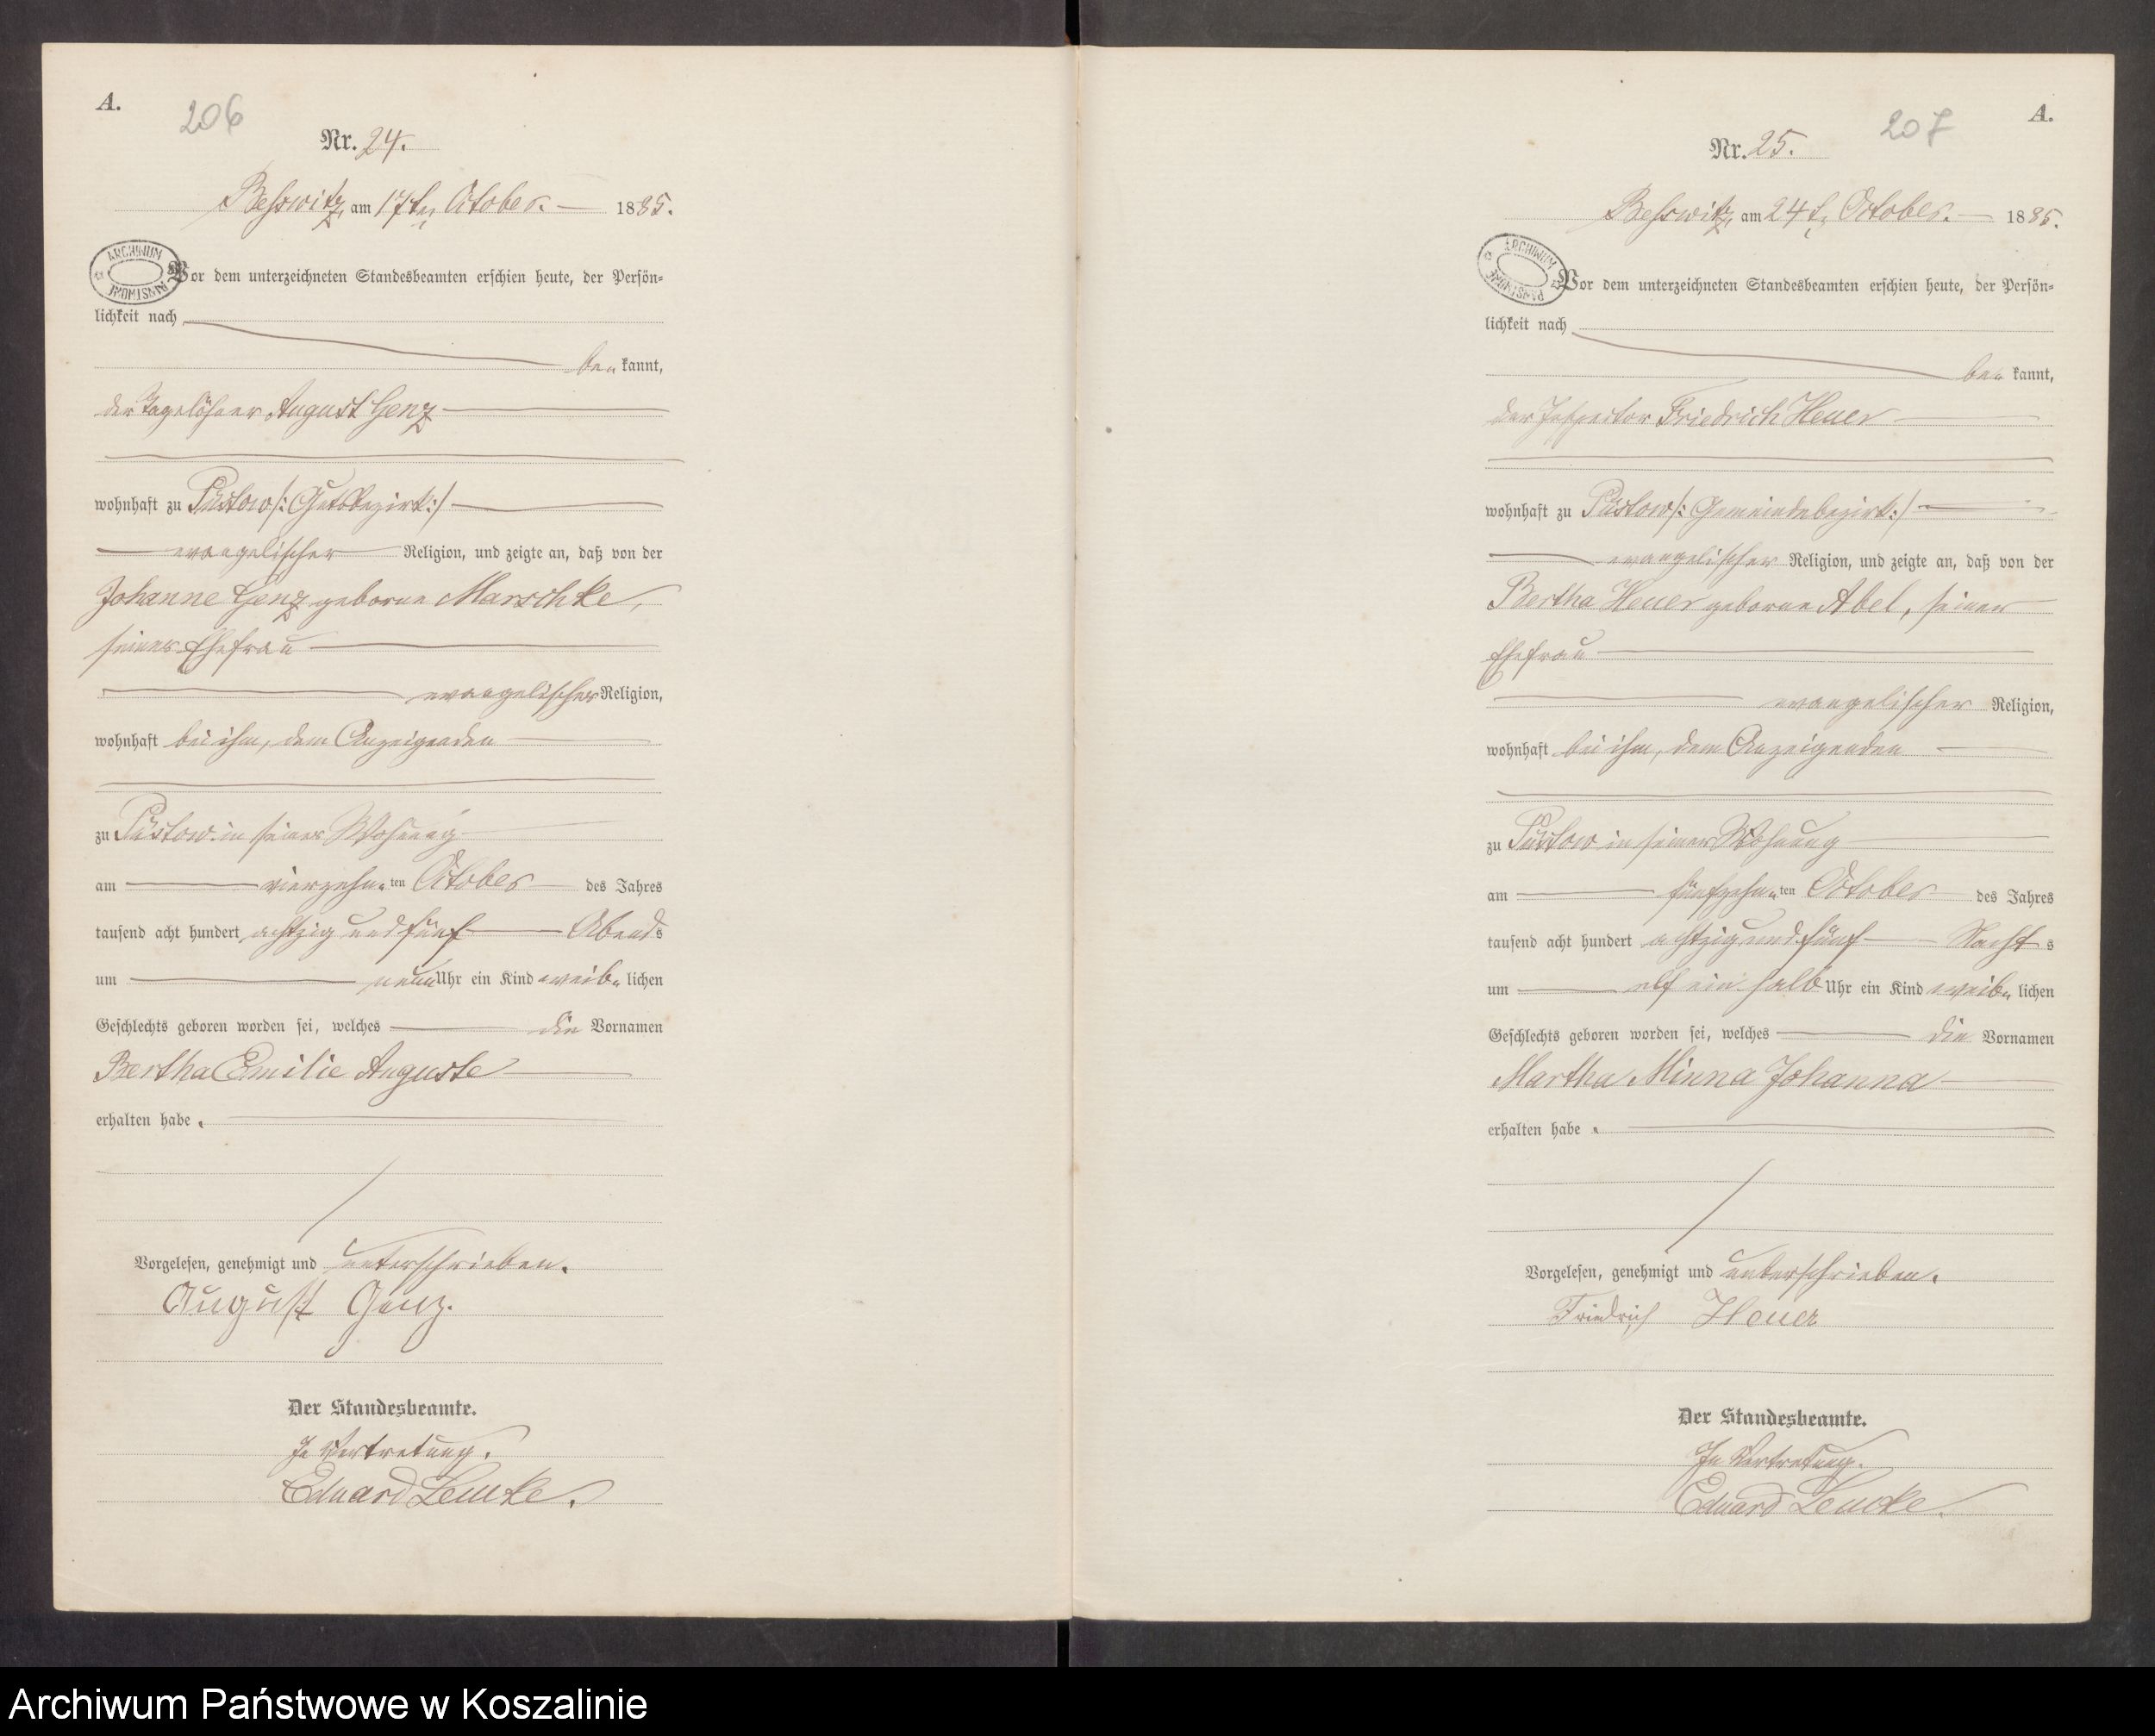 A.
206
Nr. 24.
Besswitz, am 17ten October. 1885.
ARCHIWUM PAŃSTWOWE
Vor dem unterzeichneten Standesbeamten erschien heute, der Persön-
lichkeit nach
be kannt,
der Tagelöhner August Genz
wohnhaft zu Püstow /: Gutsbezirk :/
evangelischer Religion, und zeigte an, daß von der
Johanne Genz geborne Marschke,
seiner Ehefrau
evangelischer Religion,
wohnhaft bei ihm, dem Anzeigenden
zu Püstow in seiner Wohnung
am vierzehn ten October des Jahres
tausend acht hundert achtzig und fünf Abends
um neun Uhr ein Kind weib lichen
Geschlechts geboren worden sei, welches die Vornamen
Bertha Emilie Auguste
erhalten habe.
Vorgelesen, genehmigt und unterschrieben.
August Genz.
Der Standesbeamte.
In Vertretung.
Eduard Lemke.
A.
207
Nr. 25.
Besswitz, am 24t. October. 1885.
ARCHIWUM PAŃSTWOWE
Vor dem unterzeichneten Standesbeamten erschien heute, der Persön-
lichkeit nach
be kannt,
der Inspector Friedrich Heuer
wohnhaft zu Püstow /: Gemeindebezirk :/
evangelischer Religion, und zeigte an, daß von der
Bertha Heuer geborne Abel, seiner
Ehefrau
evangelischer Religion,
wohnhaft bei ihm, dem Anzeigenden
zu Püstow in seiner Wohnung
am fünfzehn ten October des Jahres
tausend acht hundert achtzig und fünf Nacht s
um elf ein halb Uhr ein Kind weib lichen
Geschlechts geboren worden sei, welches die Vornamen
Martha Minna Johanna
erhalten habe.
Vorgelesen, genehmigt und unterschrieben.
Friedrich Heuer
Der Standesbeamte.
In Vertretung.
Eduard Lemke.
Archiwum Państwowe w Koszalinie